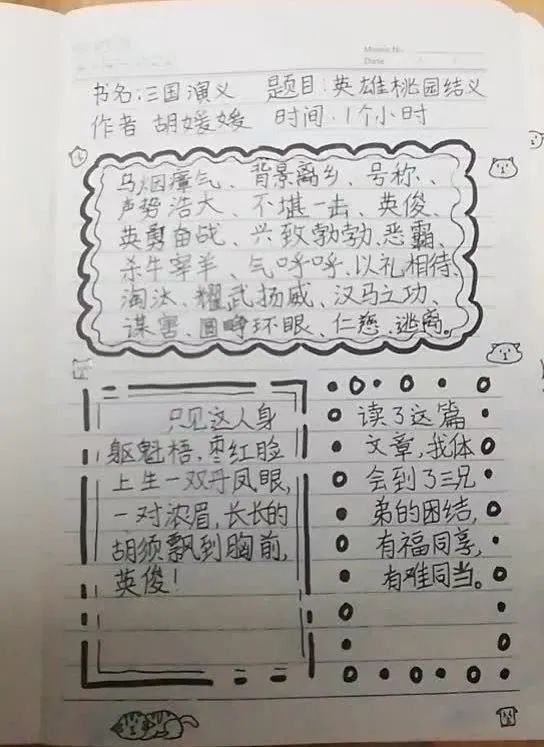 Memo No.
Date
书名:三国演义 题目:英雄桃园结义
作者 胡媛媛 时间·1个小时
乌烟瘴气、背景离乡、号称、
声势浩大、不堪一击、英俊、
英勇奋战、兴致勃勃、恶霸、
杀牛宰羊、气呼呼、以礼相待、
淘汰、耀武扬威、汉马之功、
谋害、圆睁环眼、仁慈、逃离。
只见这人身
躯魁梧,枣红脸
上生一双丹凤眼,
一对浓眉,长长的
胡须飘到胸前,
英俊!
读了这篇
文章,我体
会到了三兄
弟的团结,
有福同享,
有难同当。